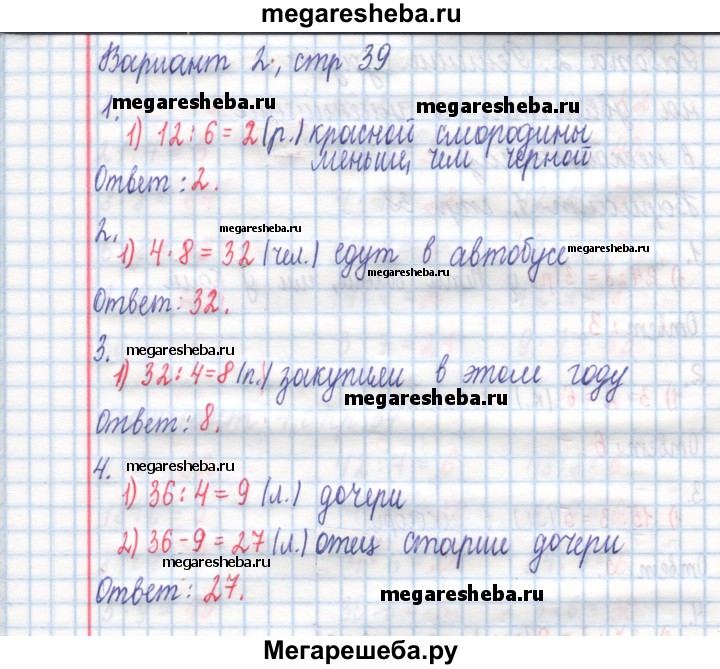 megaresheba.ru
Вариант 2, стр 39
1. megaresheba.ru megaresheba.ru
1) 12 : 6 = 2 (р.) красной смородины
меньше, чем черной
Ответ: 2.
2. megaresheba.ru
1) 4 · 8 = 32 (чел.) едут в автобусе
megaresheba.ru
megaresheba.ru
Ответ: 32.
3. megaresheba.ru
1) 32 : 4 = 8 (п.) закупили в этом году
megaresheba.ru
Ответ: 8.
4. megaresheba.ru
1) 36 : 4 = 9 (л.) дочери
2) 36 - 9 = 27 (л.) отец старше дочери
megaresheba.ru
Ответ: 27.
megaresheba.ru
Мегарешеба.ру